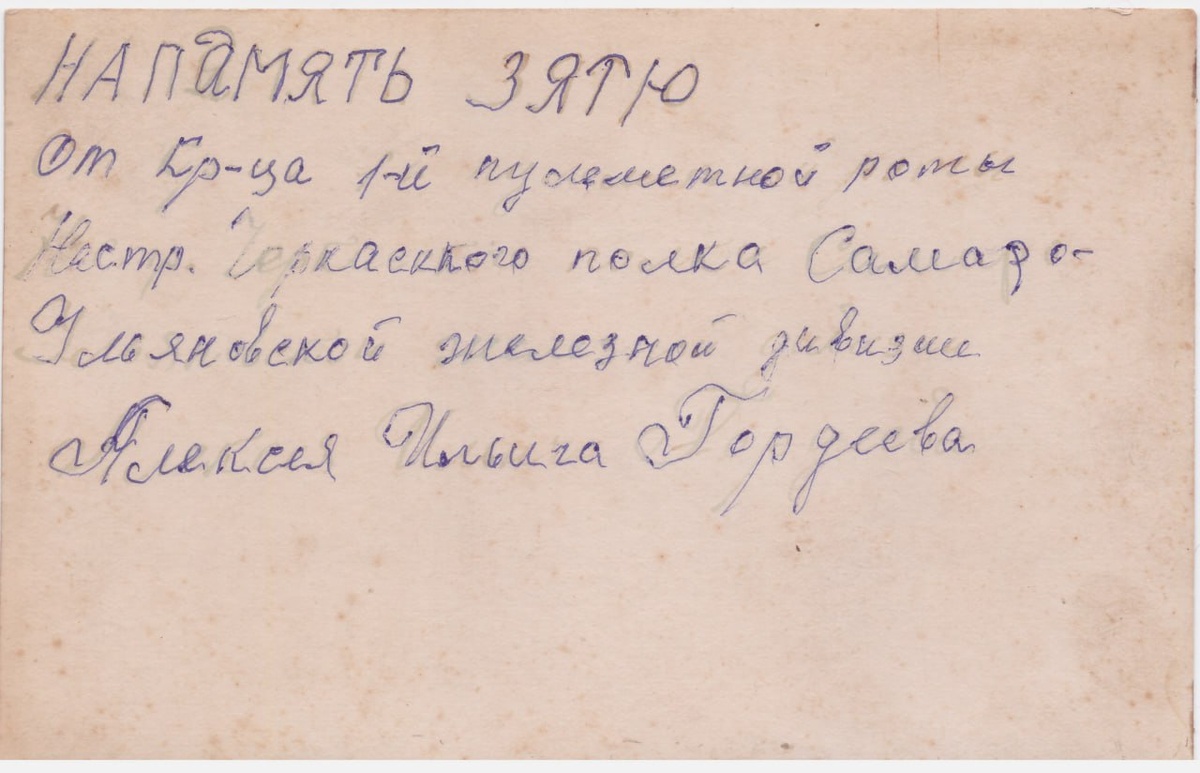 НАПАМЯТЬ ЗЯТЮ
От Кр-ца 1-й пулеметной роты
Черкасского полка Самаро-
Ульяновской железной дивизии
Алексея Ильича Гордеева